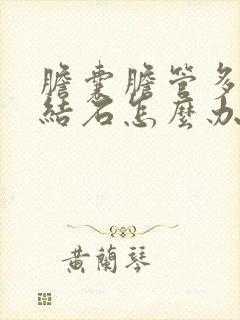 膽囊膽管多
結石怎麼办
黃蘭琴